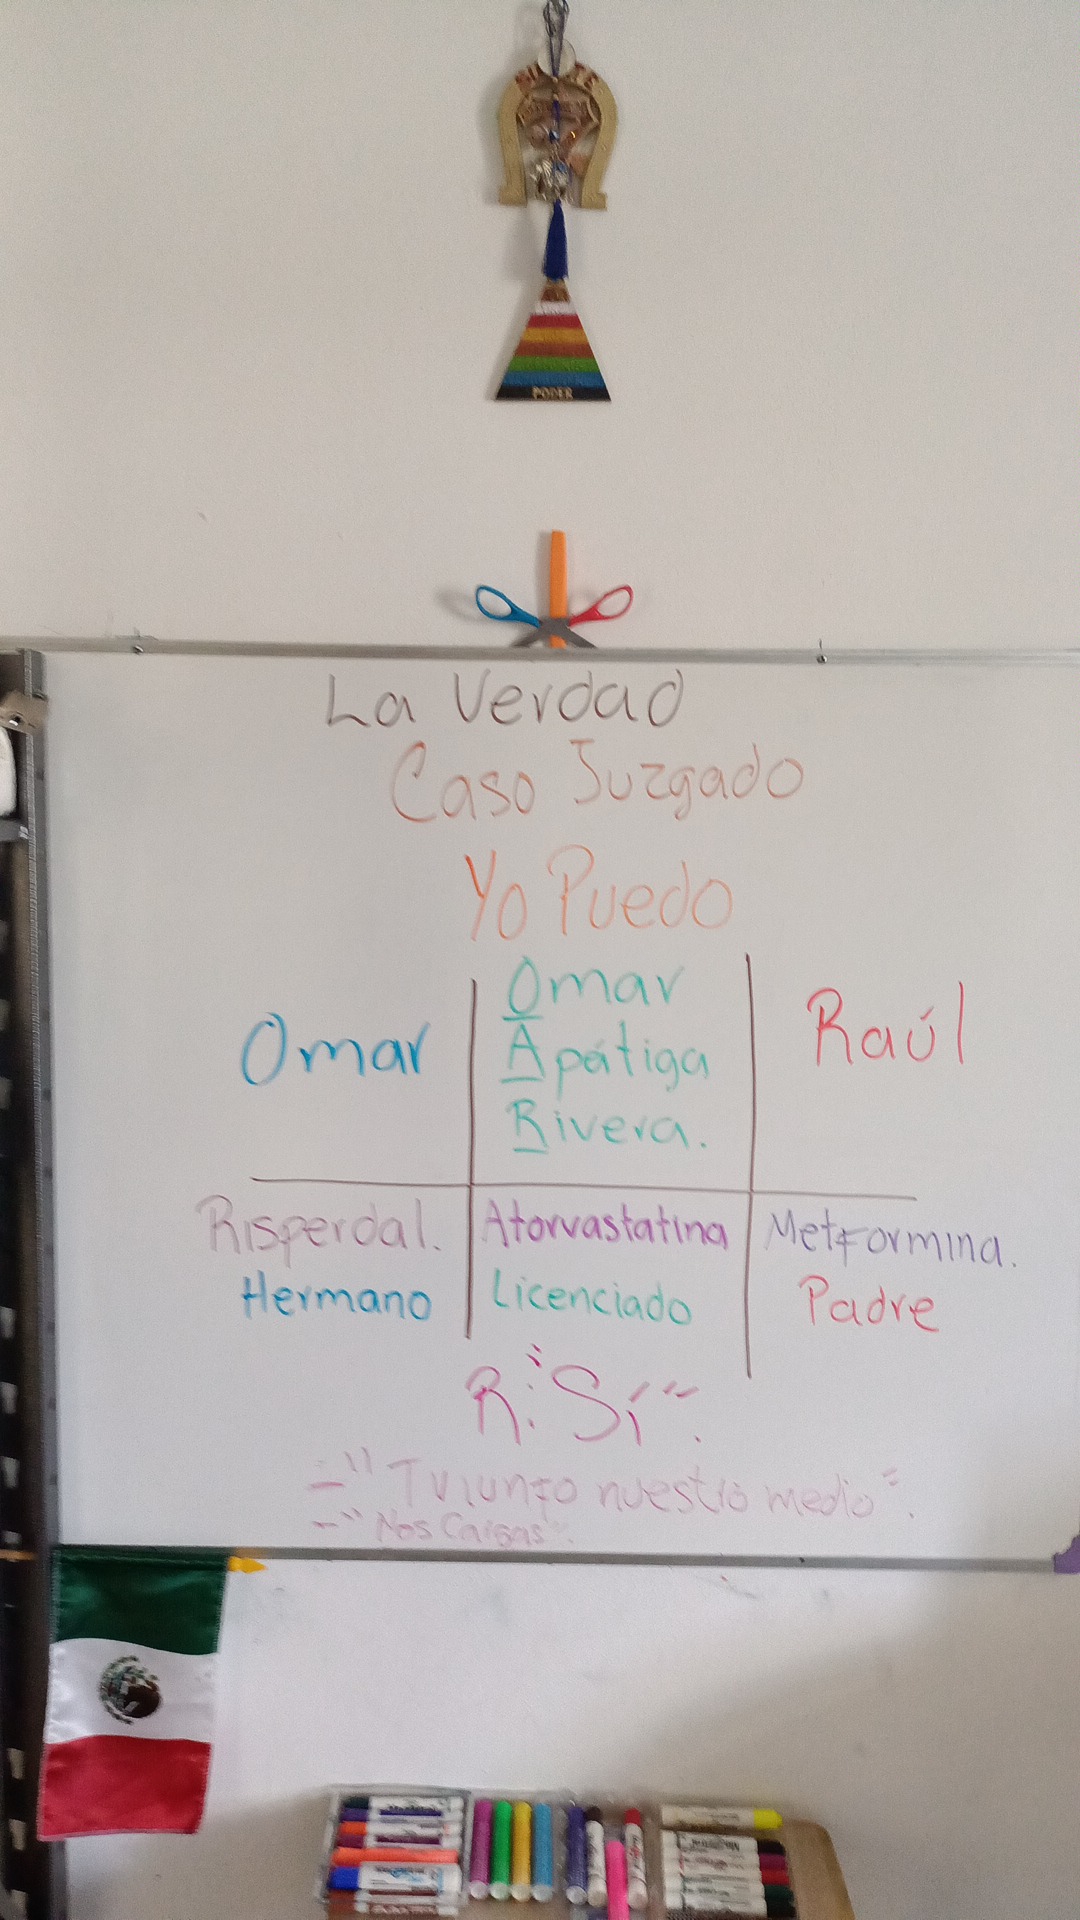 PODER
La Verdad
Caso Juzgado
Yo Puedo
Omar
Omar
Apátiga
Rivera.
Raúl
Risperdal.
Atorvastatina
Metformina.
Hermano
Licenciado
Padre
R: "Sí".
-"Triunfo nuestro medio".
-"Nos Caigas".